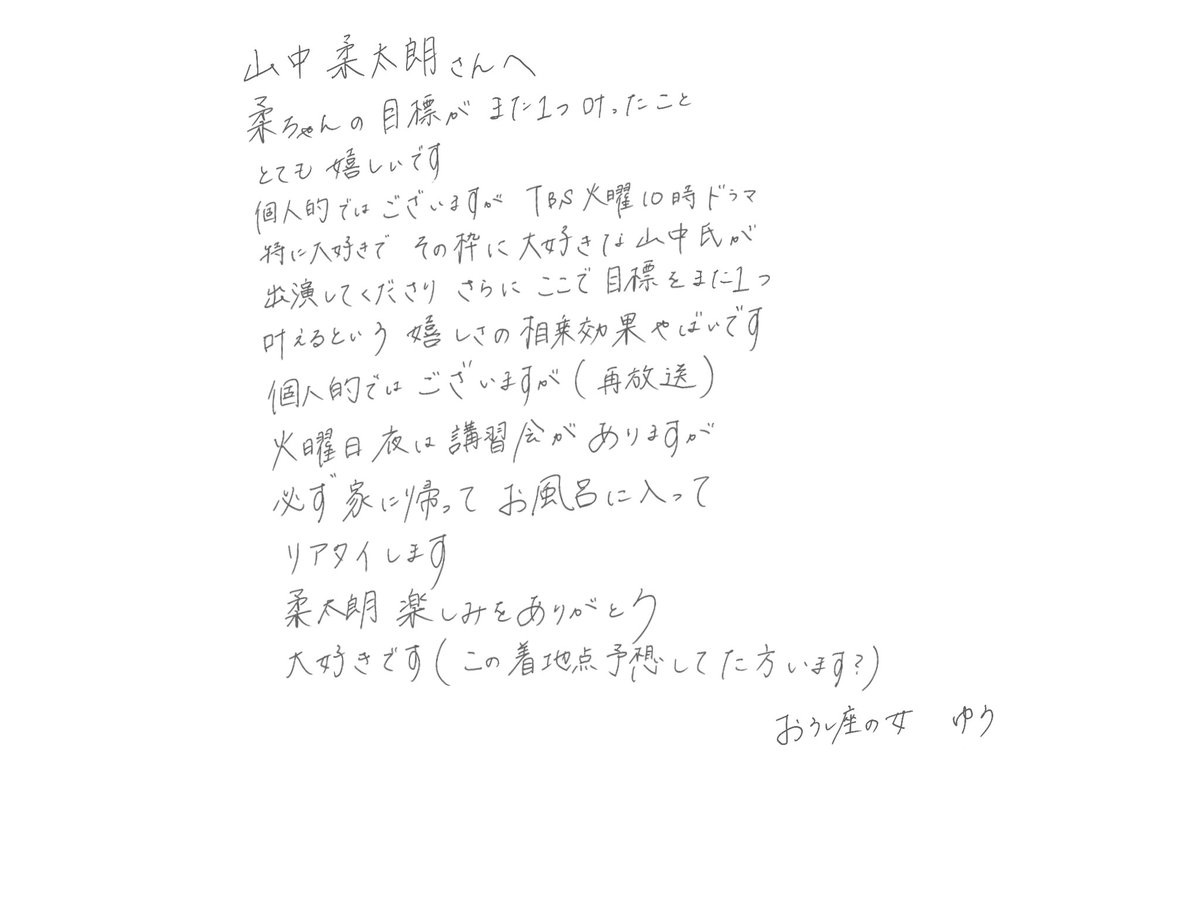 山中柔太朗さんへ
柔ちゃんの目標が また1つ叶ったこと
とても嬉しいです
個人的ではございますが TBS火曜10時ドラマ
特に大好きで その枠に大好きな山中氏が
出演してくださり さらに ここで目標をまた1つ
叶えるという 嬉しさの相乗効果やばいです
個人的ではございますが(再放送)
火曜日夜は講習会がありますが
必ず家に帰って お風呂に入って
リアタイします
柔太朗 楽しみをありがとう
大好きです(この着地点予想してた方います?)
おうし座の女 ゆう